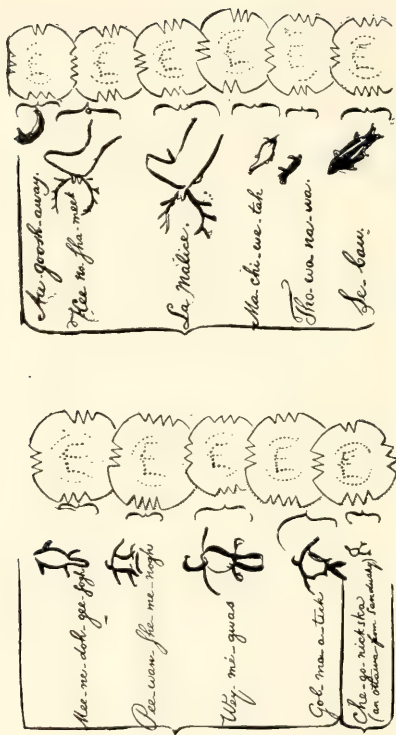 Au-goosh-away.
Kee no sha-meek
La Malice.
Ma chi-we-tah
Tho-wa na-wa.
Se-baw.
Mee-ne-doh-gee-sogh
Pee-wan-she-me-nogh
Wey-me-gwas
Gob-ma-a-tick
Che-go-nickska
(an ottawa from Sandusky)